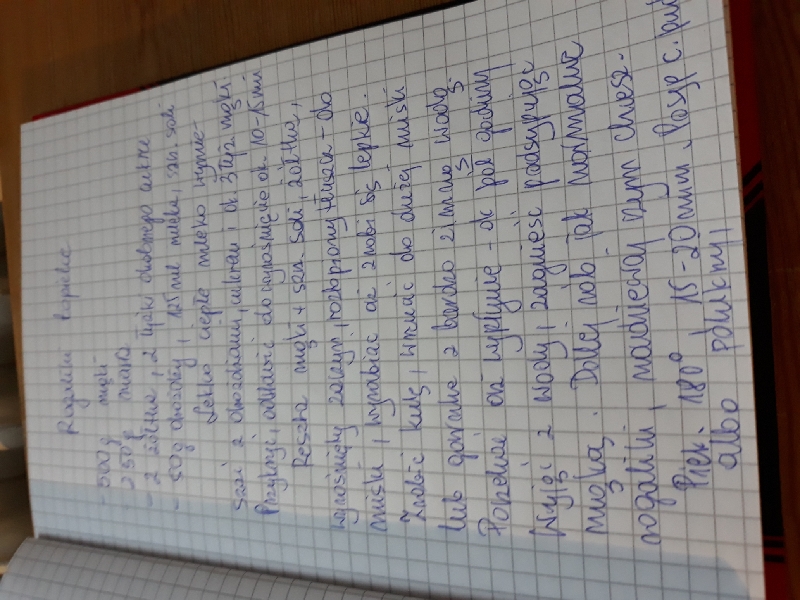 Rogaliki topielce
- 500 g mąki
250 g masła
- 2 żółtka, 2 łyżki drobnego cukru
- 50g drożdży, 125 ml mleka, szcz. soli
Lekko ciepłe mleko wymie-
szać z drożdżami, cukrem i ok 3 łyż mąki.
Przykryć, odstawić do wyrośnięcia ok. 10-15 min
Reszta mąki + szcz. soli, żółtka,
wyrośnięty zaczyn, roztopiony tłuszcz - do
miski, wyrabiać aż zrobi się lepkie.
Zrobić kulę, wrzucić do dużej miski
lub garnka z bardzo zimną wodą
Poczekać aż wypłynie - ok pół godziny
Wyjąć z wody, zagnieść podsypując
mąką. Dalej rób jak normalne
rogaliki, nadziewaj czym chcesz.
Piek. 180° 15-20 min. Posyp c. pud
albo polukruj,